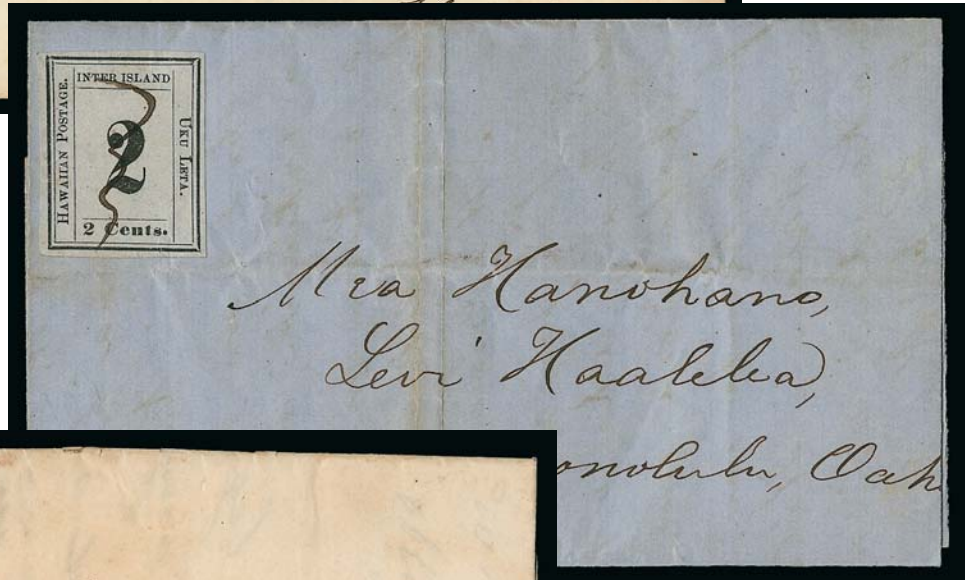 INTER ISLAND
HAWAIIAN POSTAGE.
UKU LETA.
2
2 Cents.
Mea Hanohano,
Levi Haalelea,
onolulu, Oah